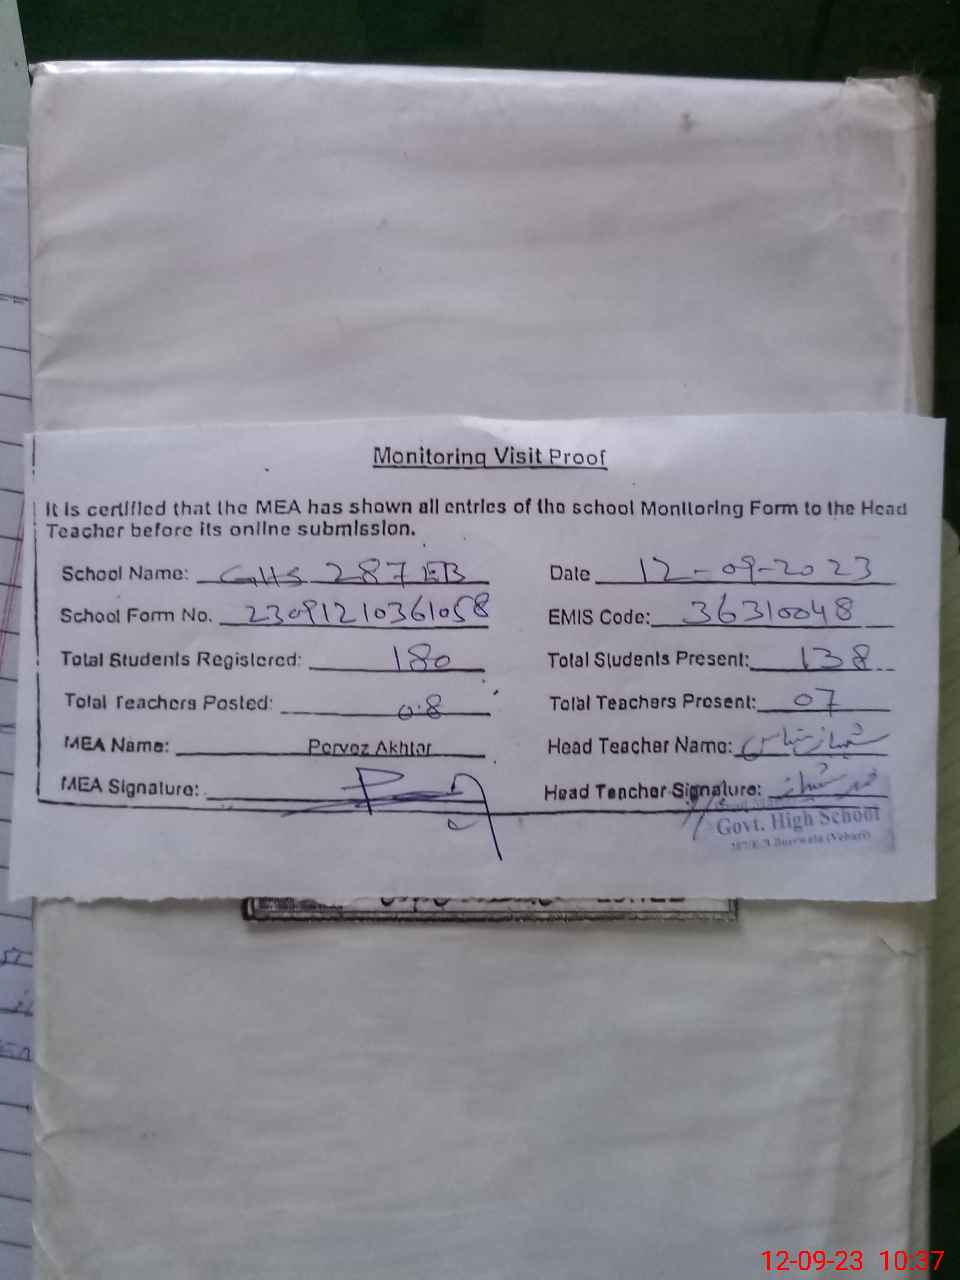 Monitoring Visit Proof
It is certified that the MEA has shown all entries of the school Monitoring Form to the Head
Teacher before its online submission.
School Name: GHS 287 EB Date 12-09-2023
School Form No. 23091210361058 EMIS Code: 36310048
Total Students Registered: 180 Total Students Present: 138
Total Teachers Posted: 08 Total Teachers Present: 07
MEA Name: Pervez Akhtar Head Teacher Name:
MEA Signature: Head Teacher Signature:
Govt. High School
287/E.B Burewala (Vehari)
12-09-23 10:37